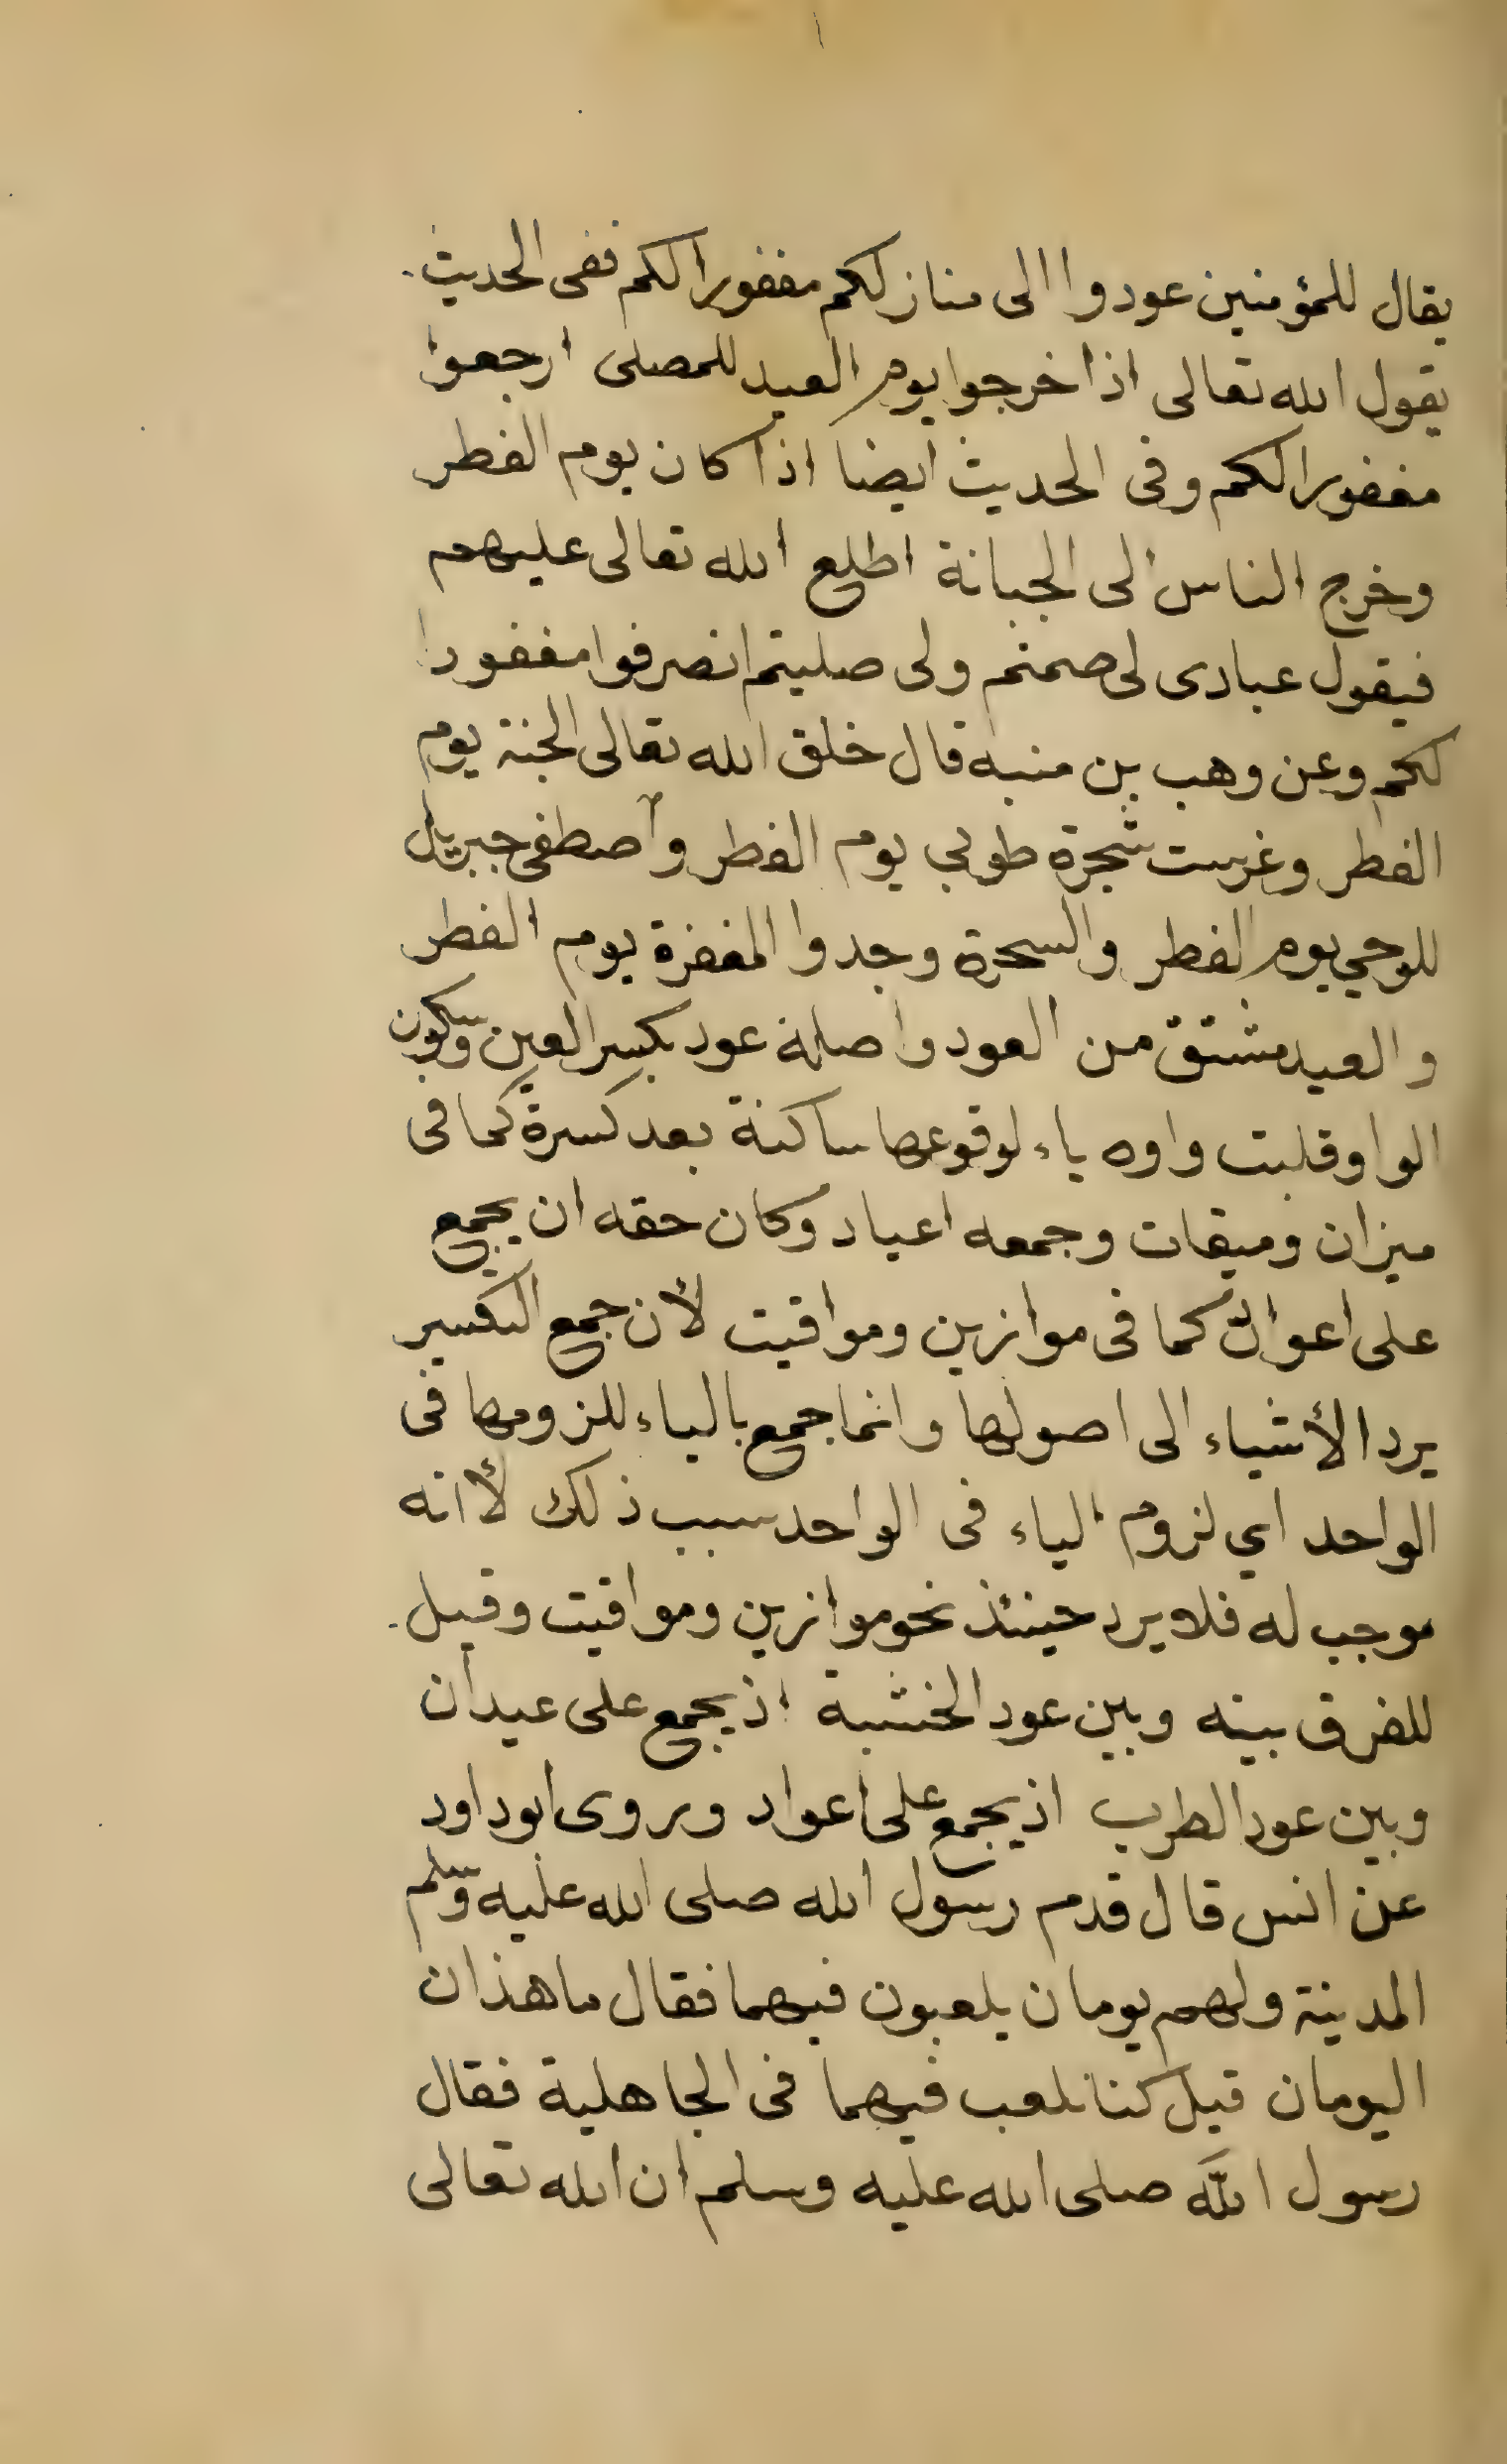 يقال للمؤمنين عودوا الى منازلكم مغفورا لكم ففى الحديث
يقول الله تعالى اذا خرجوا يوم العيد للمصلى ارجعوا
مغفورا لكم وفى الحديث ايضا اذا كان يوم الفطر
وخرج الناس الى الجبانة اطلع الله تعالى عليهم
فيقول عبادى لى صمتم ولى صليتم انصرفوا مغفورا
لكم وعن وهب بن منبه قال خلق الله تعالى الجنة يوم
الفطر وغرست شجرة طوبى يوم الفطر واصطفى جبريل
للوحي يوم الفطر والسحرة وجدوا المغفرة يوم الفطر
والعيد مشتق من العود واصله عود بكسر العين وسكون
الواو قلبت واوه ياء لوقوعها ساكنة بعد كسرة كما فى
ميزان وميقات وجمعه اعياد وكان حقه ان يجمع
على اعواد كما فى موازين ومواقيت لأن جمع التكسير
يرد الأشياء الى اصولها وانما جمع بالياء للزومها فى
الواحد اي لزوم الياء فى الواحد سبب ذلك لأنه
موجب له فلا يرد حينئذ نحو موازين ومواقيت وقيل
للفرق بينه وبين عود الخشبة اذ يجمع على عيدان
وبين عود الطرب اذ يجمع على اعواد وروى ابو داود
عن انس قال قدم رسول الله صلى الله عليه وسلم
المدينة ولهم يومان يلعبون فيهما فقال ما هذان
اليومان قيل كنا نلعب فيهما فى الجاهلية فقال
رسول الله صلى الله عليه وسلم ان الله تعالى